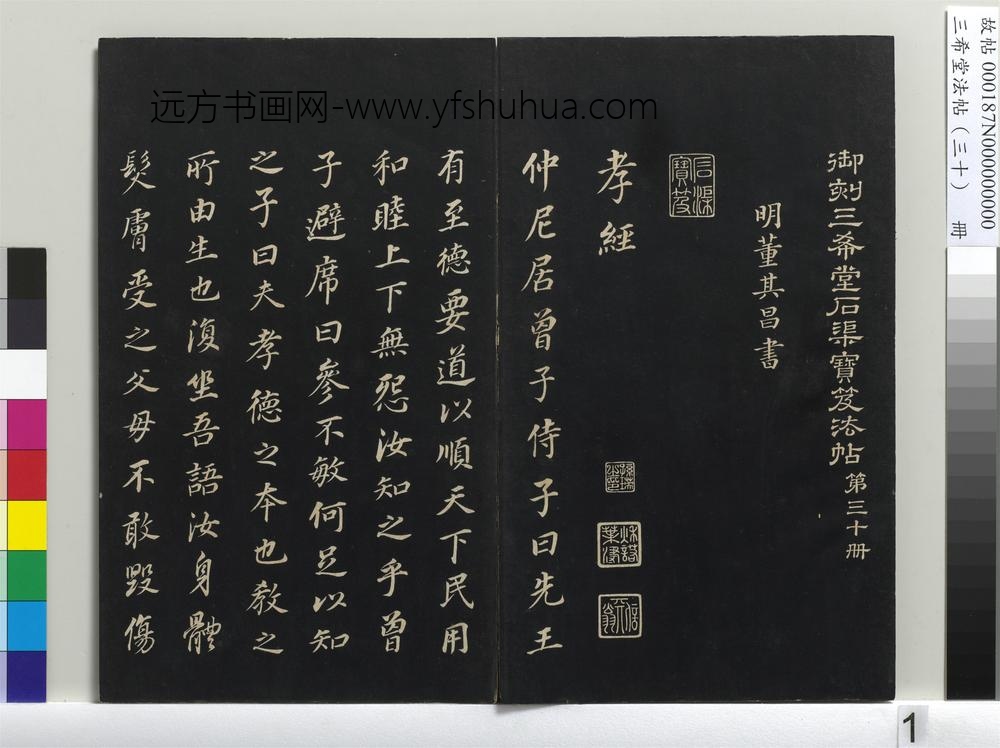 御刻三希堂石渠寶笈法帖 第三十册
明董其昌書
石渠寶笈
孝經
仲尼居曾子侍子曰先王
有至德要道以順天下民用
和睦上下無怨汝知之乎曾
子避席曰參不敏何足以知
之子曰夫孝德之本也教之
所由生也復坐吾語汝身體
髮膚受之父母不敢毀傷
远方书画网-www.yfshuhua.com
故帖 000187N000000000
三希堂法帖（三十） 冊
1